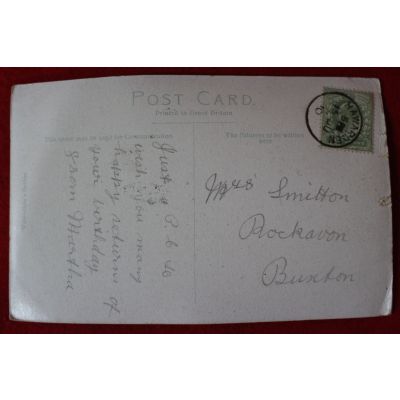 POST CARD.
Printed in Great Britain.
This space may be used for Communication
The Address to be written
here.
Just a P.C. to
wish you many
happy returns of
your birthday
from Martha
Mrs Smitton
Rockavon
Buxton
HAWARDEN